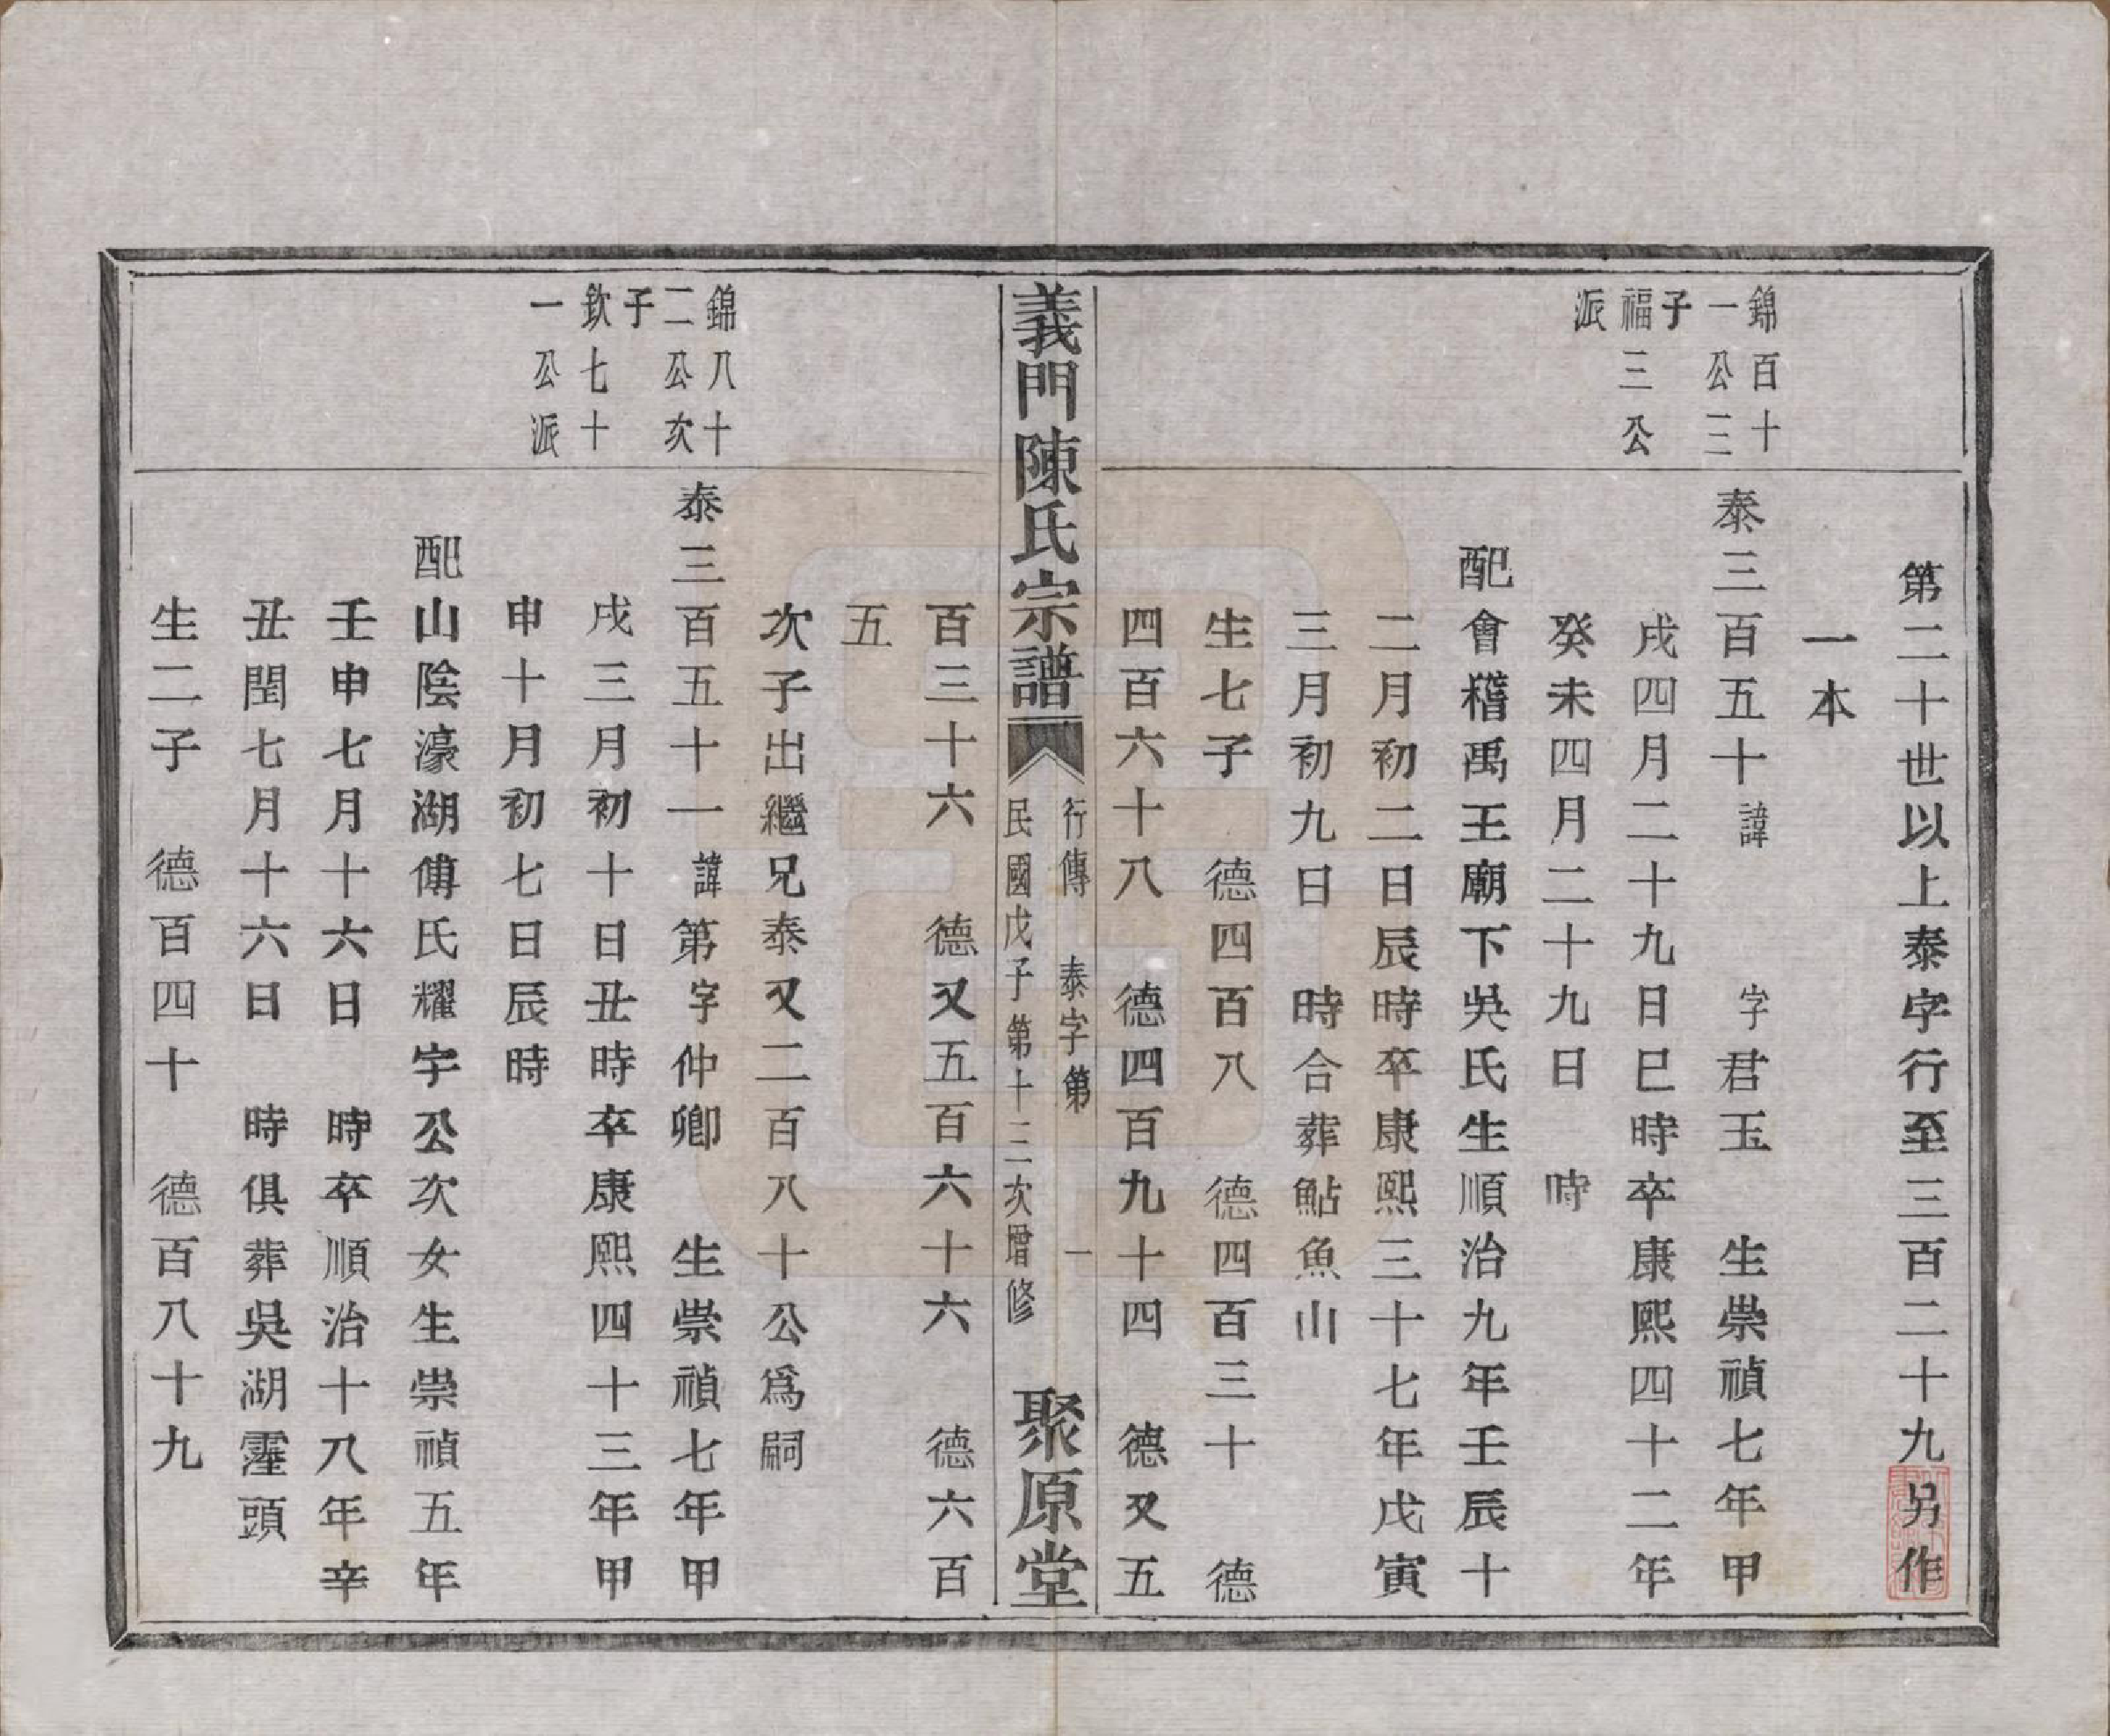 第二十世以上泰字行至三百二十九另作
一本
錦百十
一公三
子
福三公
派
泰三百五十 諱 字君玉 生崇禎七年甲
戌四月二十九日巳時卒康熙四十二年
癸未四月二十九日 時
配會稽禹王廟下吳氏生順治九年壬辰十
二月初二日辰時卒康熙三十七年戊寅
三月初九日 時合葬鮎魚山
生七子 德四百八 德四百三十 德
四百六十八 德四百九十四 德又五
義門陳氏宗譜
行傳 泰字第 一
民國戊子第十三次增修
聚原堂
百三十六 德又五百六十六 德六百
五
次子出繼兄泰又二百八十公爲嗣
錦八十
二公次
子
欽七十
一公派
泰三百五十一 諱第字仲卿 生崇禎七年甲
戌三月初十日丑時卒康熙四十三年甲
申十月初七日辰時
配山陰濠湖傅氏耀宇公次女生崇禎五年
壬申七月十六日 時卒順治十八年辛
丑閏七月十六日 時俱葬吳湖霪頭
生二子 德百四十 德百八十九